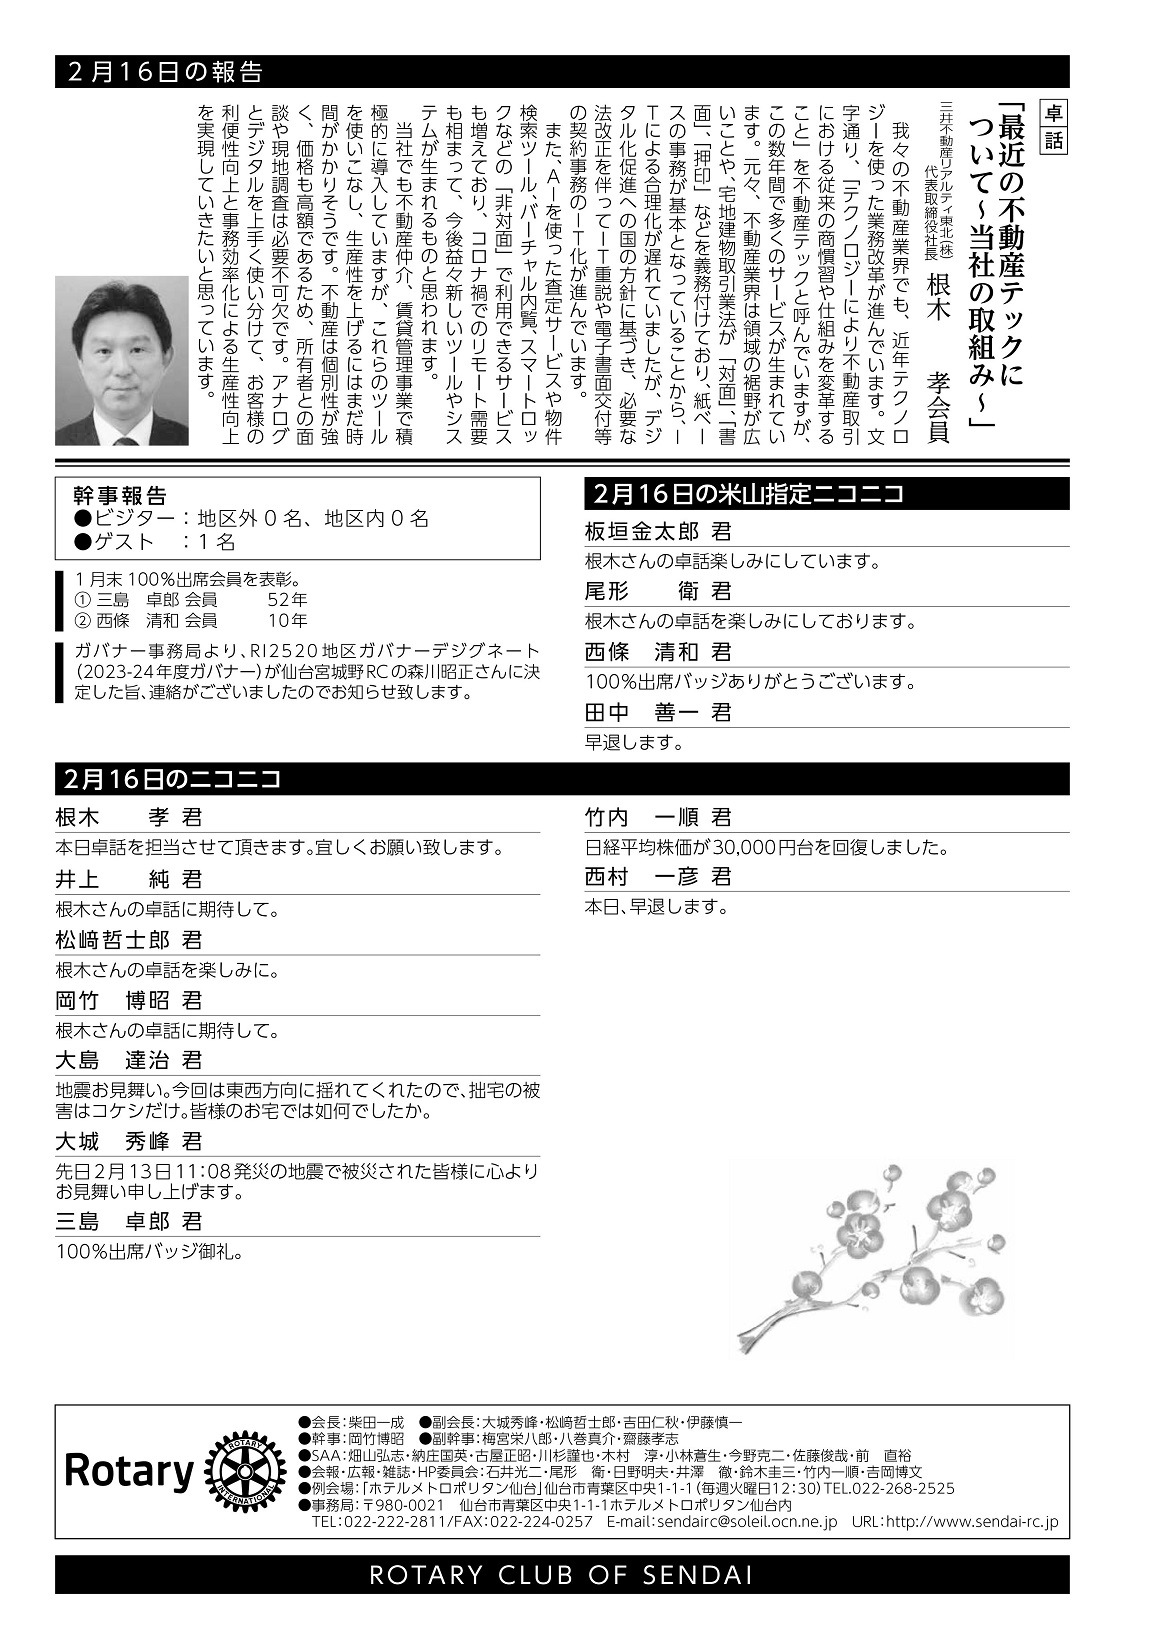 2月16日の報告
卓話
「最近の不動産テックに
ついて～当社の取組み～」
三井不動産リアルティ東北㈱
代表取締役社長 根木 孝会員
我々の不動産業界でも、近年テクノロ
ジーを使った業務改革が進んでいます。文
字通り、「テクノロジーにより不動産取引
における従来の商慣習や仕組みを変革する
こと」を不動産テックと呼んでいますが、
この数年間で多くのサービスが生まれてい
ます。元々、不動産業界は領域の裾野が広
いことや、宅地建物取引業法が「対面」、「書
面」、「押印」などを義務付けており、紙ベー
スの事務が基本となっていることから、I
Tによる合理化が遅れていましたが、デジ
タル化促進への国の方針に基づき、必要な
法改正を伴ってIT重説や電子書面交付等
の契約事務のIT化が進んでいます。
また、AIを使った査定サービスや物件
検索ツール、バーチャル内覧、スマートロッ
クなどの「非対面」で利用できるサービス
も増えており、コロナ禍でのリモート需要
も相まって、今後益々新しいツールやシス
テムが生まれるものと思われます。
当社でも不動産仲介、賃貸管理事業で積
極的に導入していますが、これらのツール
を使いこなし、生産性を上げるにはまだ時
間がかかりそうです。不動産は個別性が強
く、価格も高額であるため、所有者との面
談や現地調査は必要不可欠です。アナログ
とデジタルを上手く使い分けて、お客様の
利便性向上と事務効率化による生産性向上
を実現していきたいと思っています。
幹事報告
●ビジター：地区外0名、地区内0名
●ゲスト　：1名
1月末100%出席会員を表彰。
① 三島　卓郎 会員　52年
② 西條　清和 会員　10年
ガバナー事務局より、RI2520地区ガバナーデジグネート
（2023-24年度ガバナー）が仙台宮城野RCの森川昭正さんに決
定した旨、連絡がございましたのでお知らせ致します。
2月16日の米山指定ニコニコ
板垣金太郎 君
根木さんの卓話楽しみにしています。
尾形　衛 君
根木さんの卓話を楽しみにしております。
西條　清和 君
100%出席バッジありがとうございます。
田中　善一 君
早退します。
2月16日のニコニコ
根木　孝 君
本日卓話を担当させて頂きます。宜しくお願い致します。
井上　純 君
根木さんの卓話に期待して。
松﨑哲士郎 君
根木さんの卓話を楽しみに。
岡竹　博昭 君
根木さんの卓話に期待して。
大島　達治 君
地震お見舞い。今回は東西方向に揺れてくれたので、拙宅の被
害はコケシだけ。皆様のお宅では如何でしたか。
大城　秀峰 君
先日2月13日11：08発災の地震で被災された皆様に心より
お見舞い申し上げます。
三島　卓郎 君
100%出席バッジ御礼。
竹内　一順 君
日経平均株価が30,000円台を回復しました。
西村　一彦 君
本日、早退します。
Rotary
ROTARY INTERNATIONAL
●会長：柴田一成　●副会長：大城秀峰・松﨑哲士郎・吉田仁秋・伊藤慎一
●幹事：岡竹博昭　●副幹事：梅宮栄八郎・八巻真介・齋藤孝志
●SAA：畑山弘志・納庄国英・古屋正昭・川杉謹也・木村　淳・小林蒼生・今野克二・佐藤俊哉・前　直裕
●会報・広報・雑誌・HP委員会：石井光二・尾形　衛・日野明夫・井澤　徹・鈴木圭三・竹内一順・吉岡博文
●例会場：「ホテルメトロポリタン仙台」仙台市青葉区中央1-1-1（毎週火曜日12：30）TEL.022-268-2525
●事務局：〒980-0021　仙台市青葉区中央1-1-1ホテルメトロポリタン仙台内
TEL：022-222-2811/FAX：022-224-0257　E-mail：sendairc@soleil.ocn.ne.jp　URL：http://www.sendai-rc.jp
ROTARY CLUB OF SENDAI